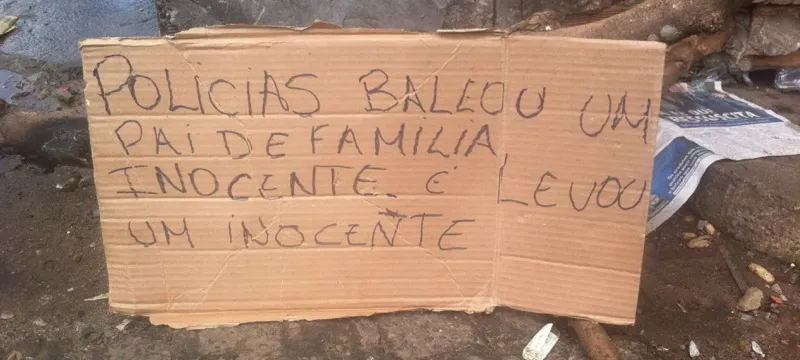 POLICIAS BALEOU UM
PAI DE FAMILIA
INOCENTE E LEVOU
UM INOCENTE